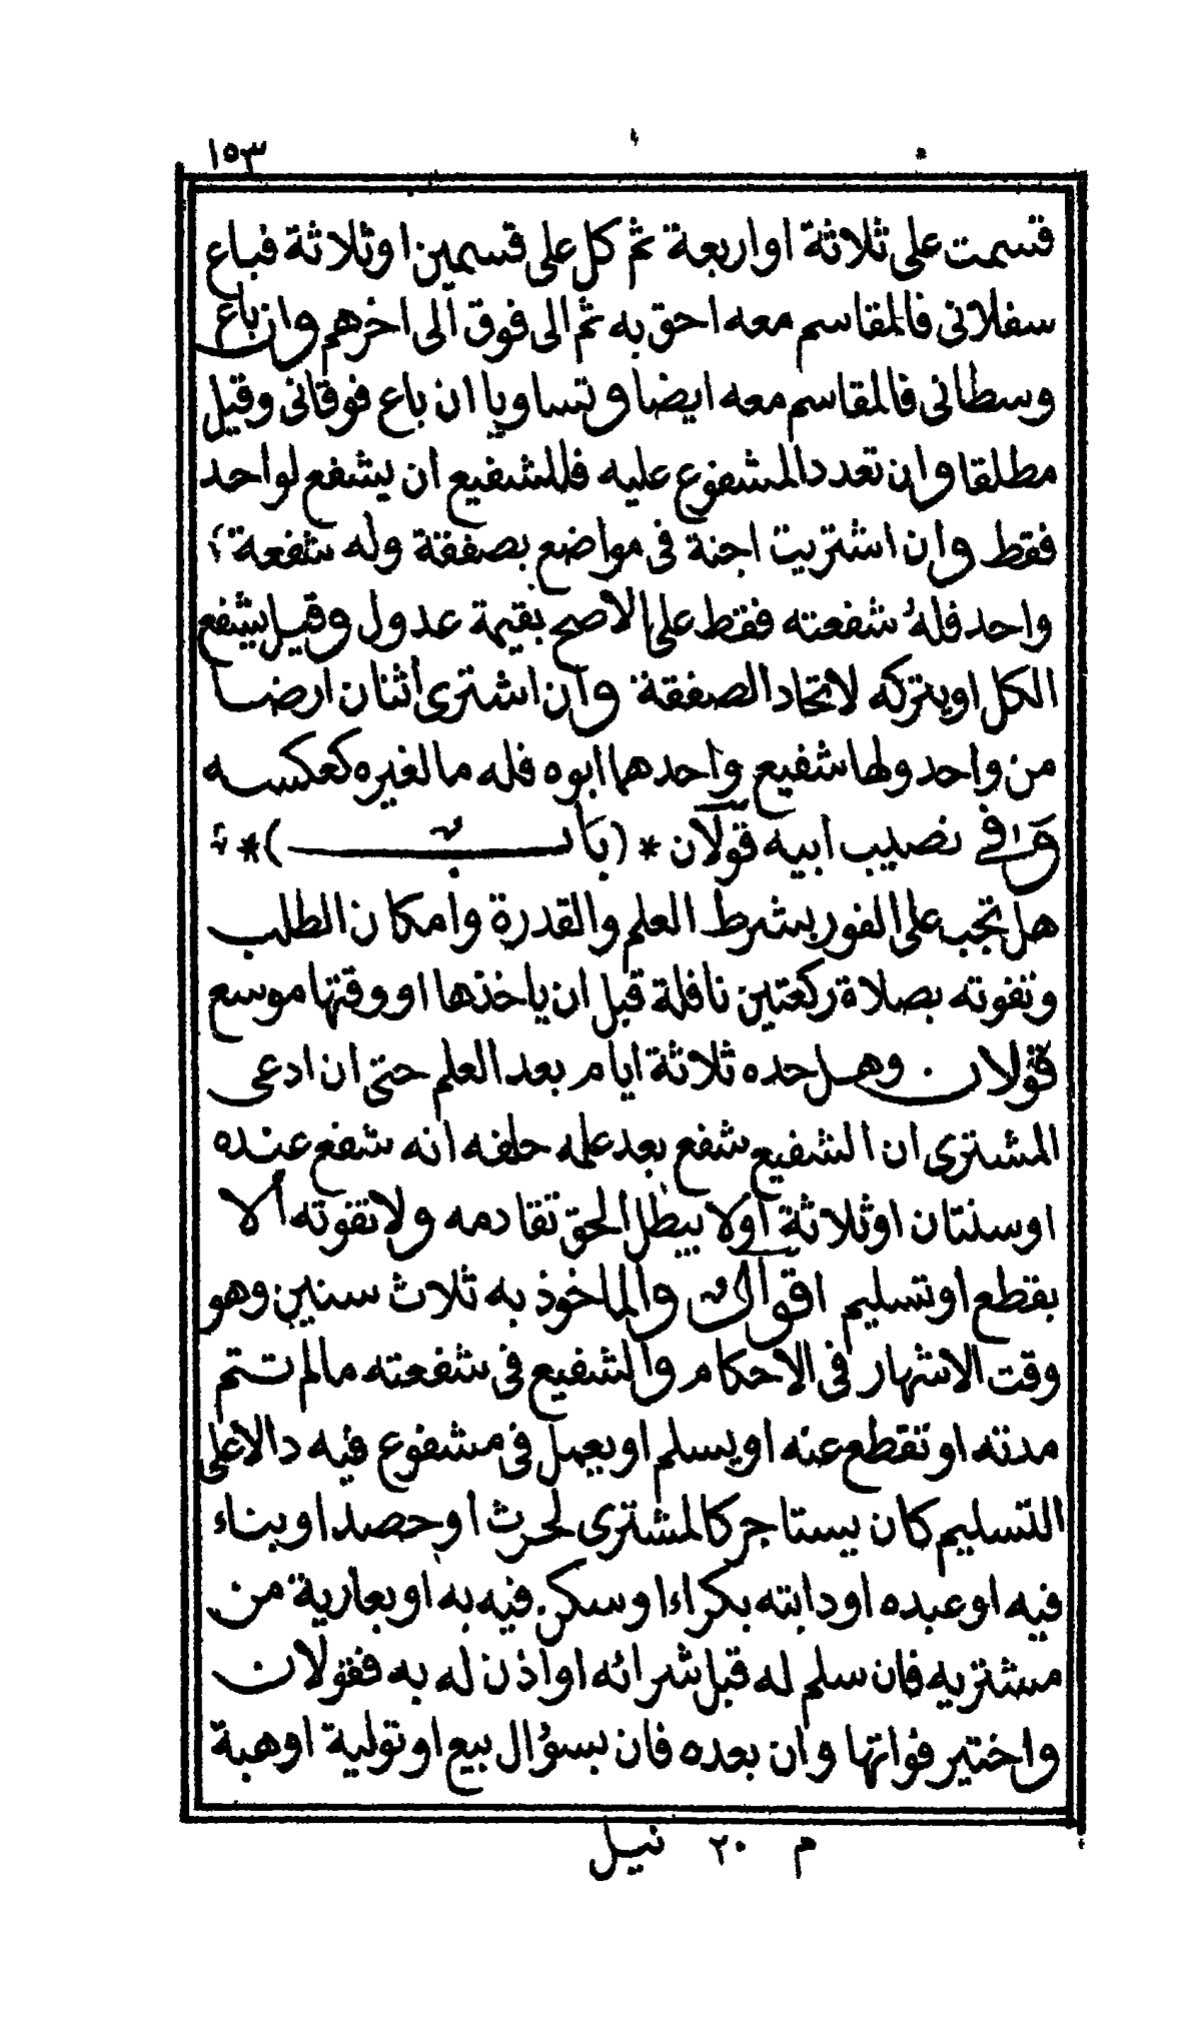 ١٥٣
قسمت على ثلاثة او اربعة ثم كل على قسمين او ثلاثة فباع
سفلانى فالمقاسم معه احق به ثم الى فوق الى اخرهم وان باع
وسطانى فالمقاسم معه ايضا وتساويا ان باع فوقانى وقيل
مطلقا وان تعدد المشفوع عليه فللشفيع ان يشفع لواحد
فقط وان اشتريت اجنة فى مواضع بصفقة وله شفعة
واحد فله شفعته فقط على الاصح بقيمة عدول وقيل يشفع
الكل او يتركه لاتحاد الصفقة وان اشترى اثنان ارضا
من واحد ولها شفيع واحدهما ابوه فله ما لغيره كعكسه
وفى نصيب ابيه قولان * (باب) *
هل تجب على الفور بشرط العلم والقدرة وامكان الطلب
وتفوته بصلاة ركعتين نافلة قبل ان ياخذها او وقتها موسع
قولان وهل حده ثلاثة ايام بعد العلم حتى ان ادعى
المشترى ان الشفيع شفع بعد علمه حلفه انه شفع عنده
او سنتان او ثلاثة او لا يبطل الحق تقادمه ولا تفوته الا
بقطع او تسليم اقوال والماخوذ به ثلاث سنين وهو
وقت الاشهار فى الاحكام والشفيع فى شفعته مالم تتم
مدته او تقطع عنه او يسلم او يعمل فى مشفوع فيه دالا على
التسليم كان يستاجر كالمشترى لحرث او حصد او بناء
فيه او عبده او دابته بكراء او سكن فيه به او بعارية من
مشتريه فان سلم له قبل شرائه او اذن له به فقولان
واختير فواتها وان بعده فان بسؤال بيع او تولية او هبة
م ٢٠ نيل